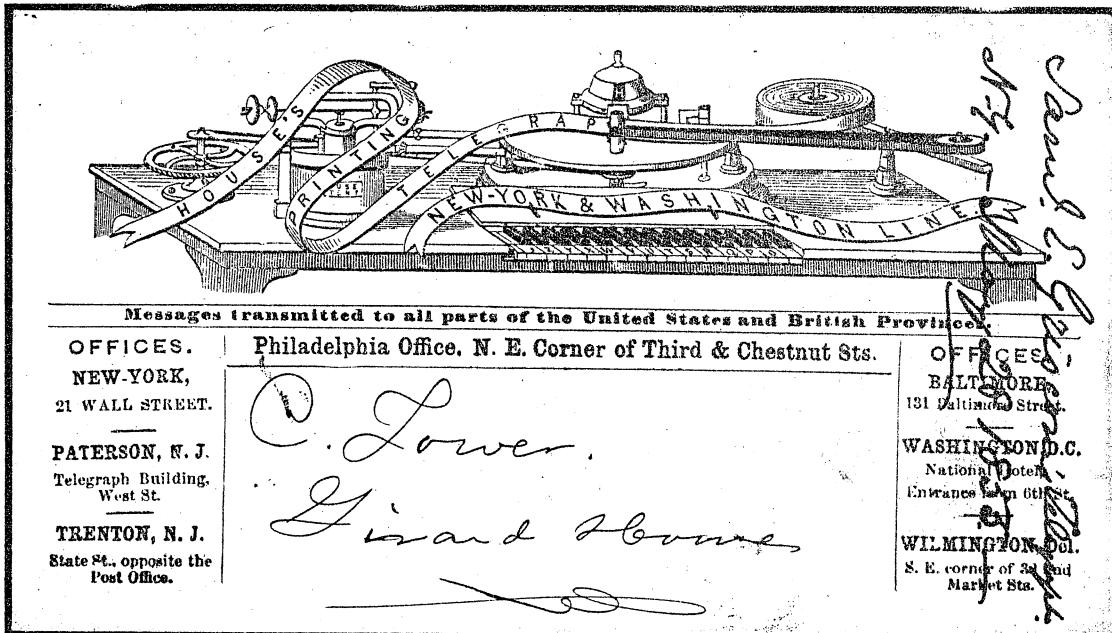 HOUSE'S PRINTING TELEGRAP
NEW-YORK & WASHINGTON LINE.
Messages transmitted to all parts of the United States and British Provinces
OFFICES.
NEW-YORK,
21 WALL STREET.
PATERSON, N. J.
Telegraph Building,
West St.
TRENTON, N. J.
State St., opposite the
Post Office.
Philadelphia Office. N. E. Corner of Third & Chestnut Sts.
C. Tower.
Girard House
OFFICES
BALTIMORE
131 Baltimore Street.
WASHINGTON, D.C.
National Hotel,
Entrance from 6th St.
WILMINGTON, Del.
S. E. corner of 3d and
Market Sts.
Saml. L.
N-Y 28 185